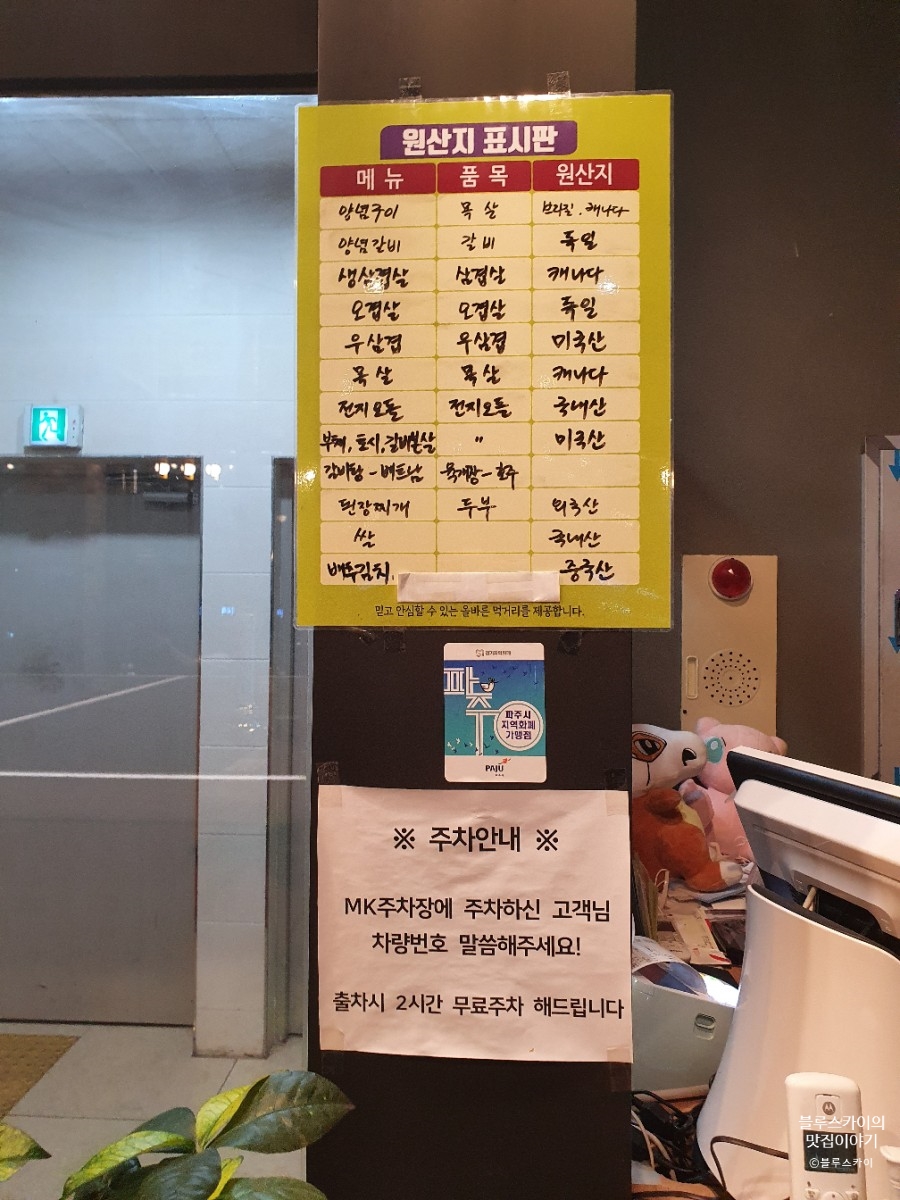 원산지 표시판
메뉴 품목 원산지
양념구이 목살 브라질. 캐나다
양념갈비 갈비 독일
생삼겹살 삼겹살 캐나다
오겹살 오겹살 독일
우삼겹 우삼겹 미국산
목살 목살 캐나다
전지오돌 전지오돌 국내산
부채, 토시, 갈비본살 〃 미국산
갈비탕-베트남 육개장-호주
된장찌개 두부 외국산
쌀 국내산
배추김치. 중국산
믿고 안심할 수 있는 올바른 먹거리를 제공합니다.
경기지역화폐
파주
파주시
지역화폐
가맹점
PAJU
※ 주차안내 ※
MK주차장에 주차하신 고객님
차량번호 말씀해주세요!
출차시 2시간 무료주차 해드립니다
블루스카이의
맛집이야기
©블루스카이